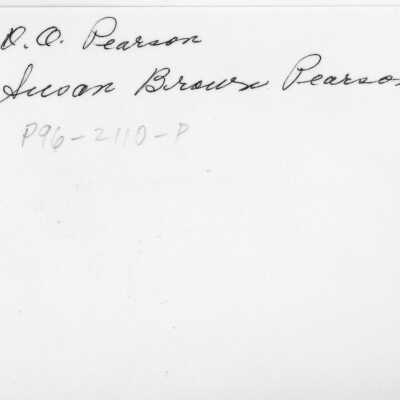 O. O. Pearson
Susan Brown Pearson
P96-2110-P